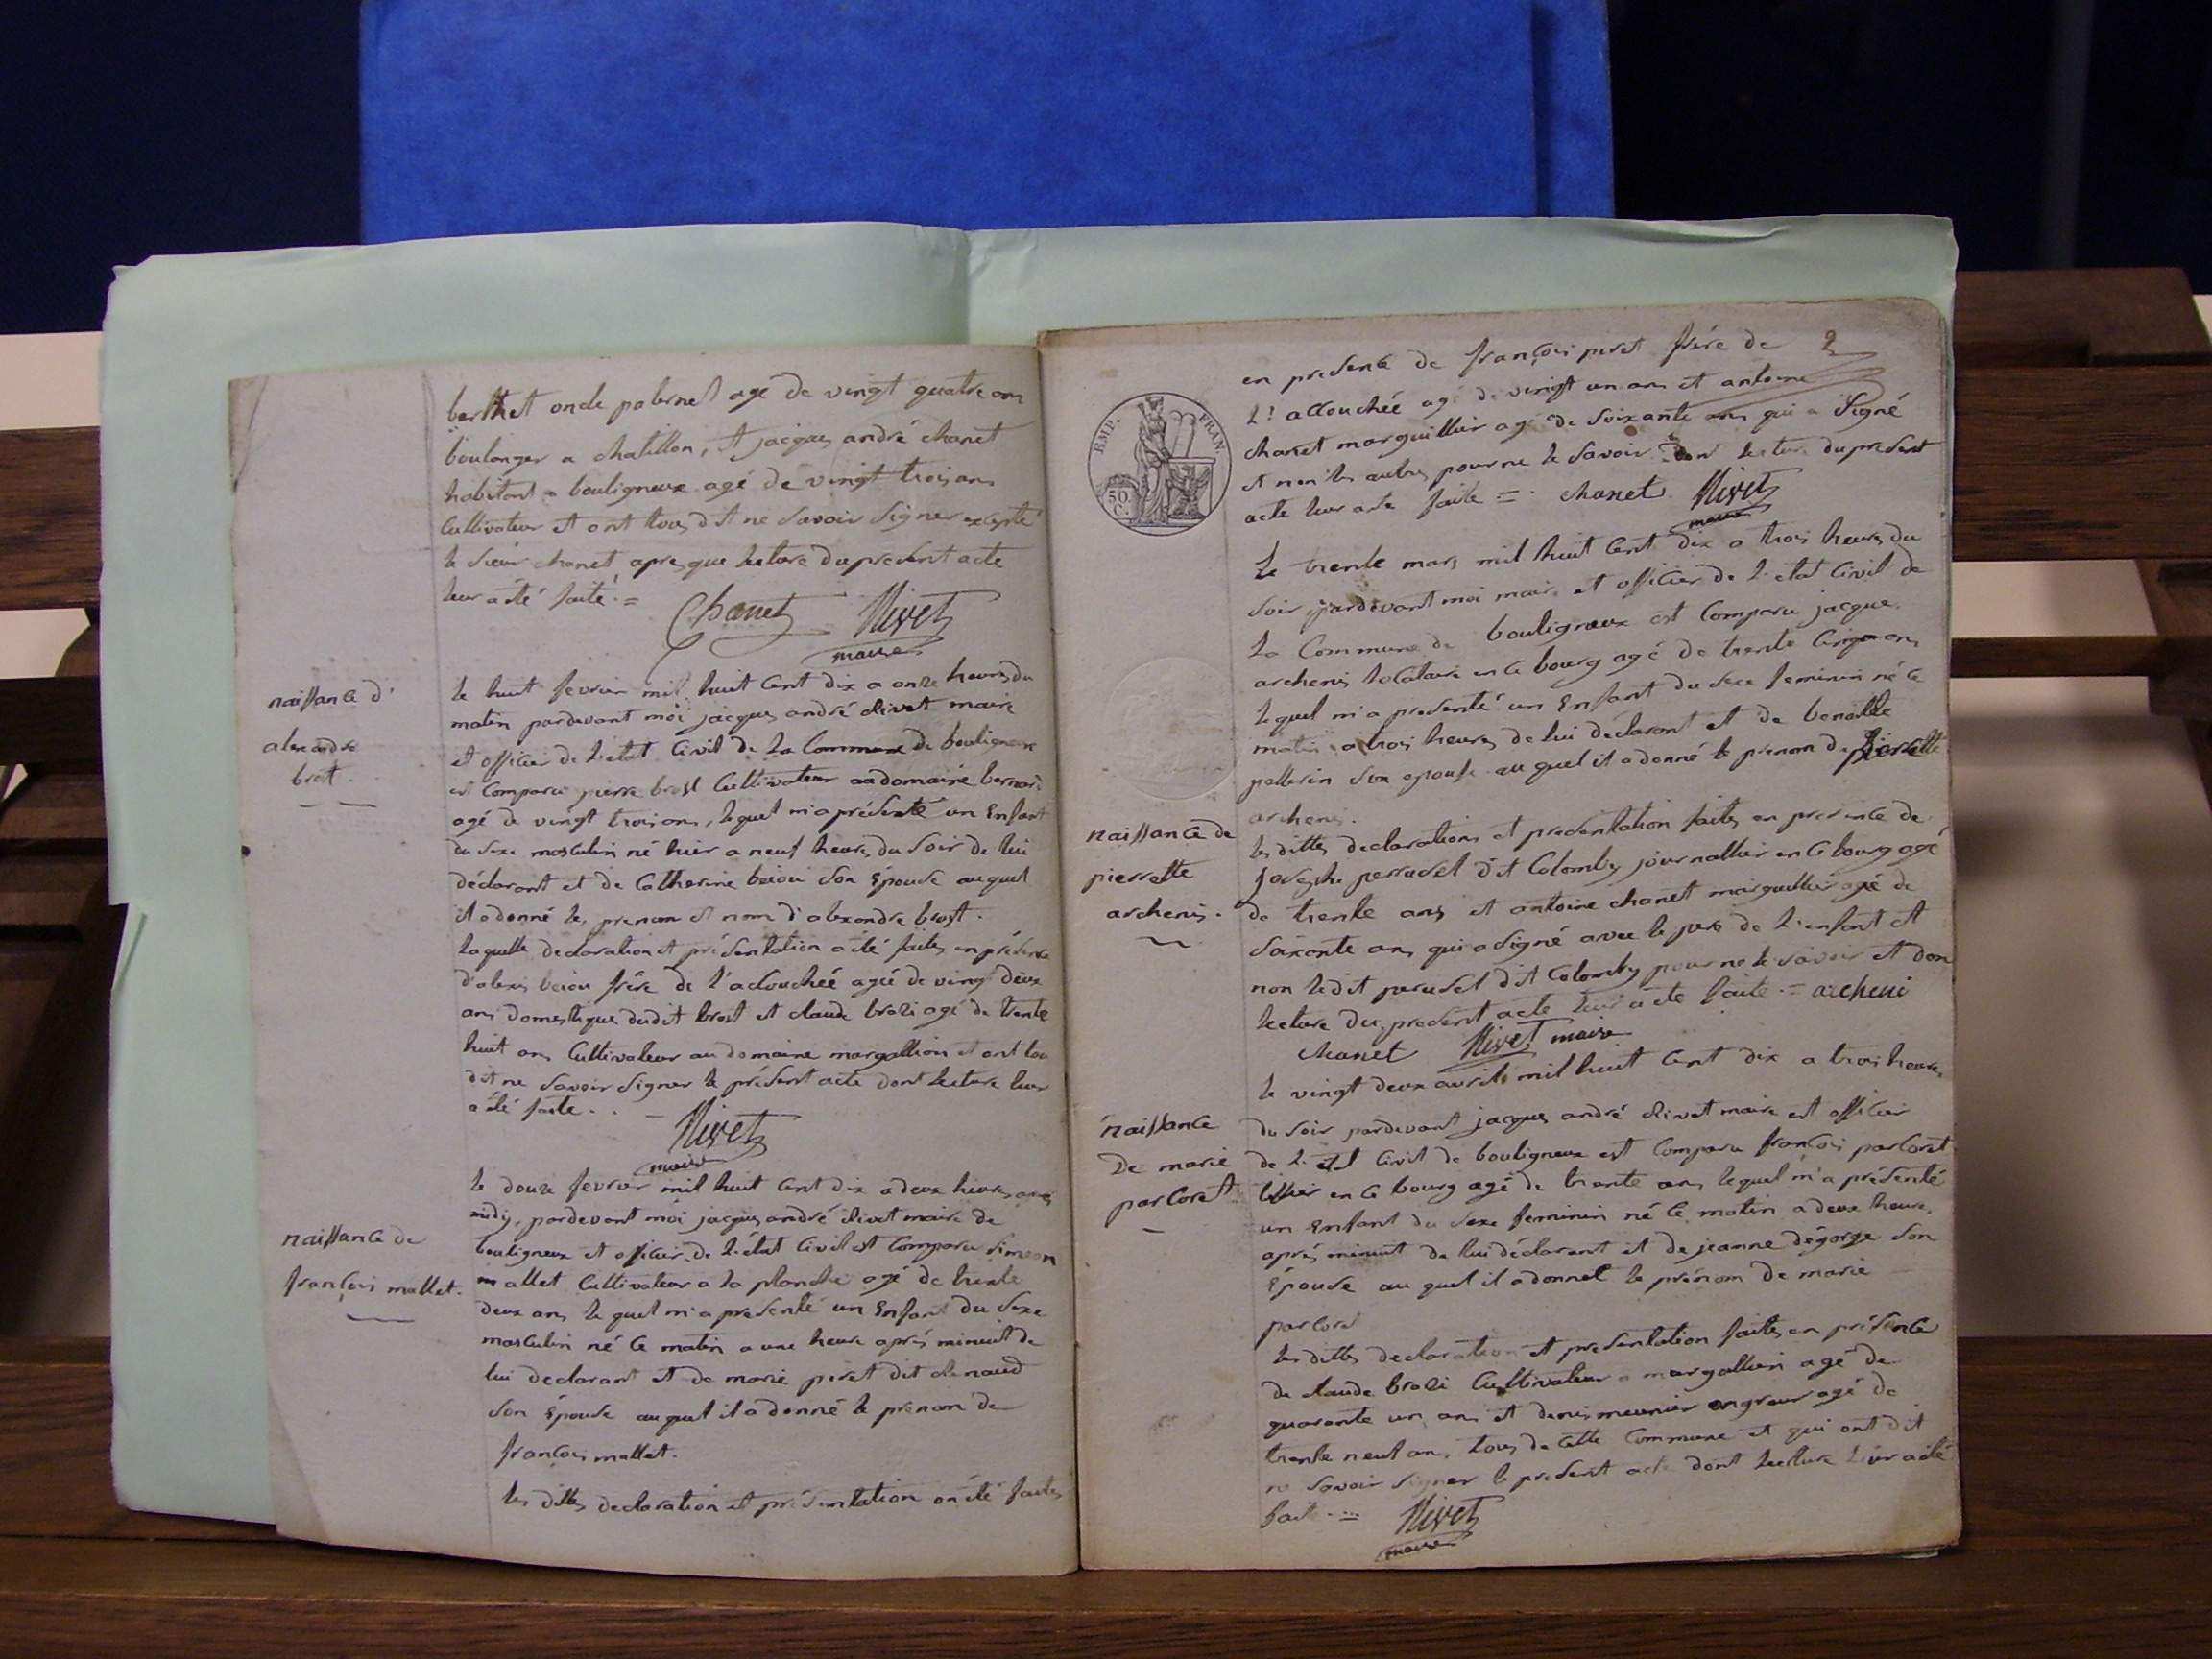 berthet oncle paternel agé de vingt quatre ans
boulanger a chatillon, et jacques andré chanet
habitant a bouligneux agé de vingt trois ans
Cultivateur et ont tous dit ne savoir signer excepté
le sieur chanet apres que lecture du present acte
leur a été faite. =
Chanet Nivet
maire
naissance d'
alexandre
brost.
le huit fevrier mil huit cent dix a onze heures du
matin pardevant moi jacques andré nivet maire
et officier de l'etat Civil de la Commune de bouligneux
est Comparu pierre brost Cultivateur au domaine bernard
agé de vingt trois ans, lequel m'a présenté un Enfant
du sexe masculin né hier a neuf heures du soir de lui
déclarant et de Catherine son Épouse auquel
il a donné les prenom et nom d'alexandre brost.
laquelle declaration et présentation a été faites en présence
d'alexis frère de l'acouchée agée de vingt deux
ans domestique dudit brost et claude brazi agé de trente
huit ans Cultivateur au domaine margollion et ont tous
dit ne savoir signer le présent acte dont lecture leur
a été faite. . —
Nivet
maire
naissance de
françois mallet.
le douze fevrier mil huit Cent dix a deux heures apres
midy, pardevant moi jacques andré nivet maire de
bouligneux et officier de l'état Civil est Comparu simeon
mallet Cultivateur a la planche agé de trente
deux ans lequel m'a presenté un Enfant du sexe
masculin né ce matin a une heure aprés minuit de
lui declarant et de marie piret dit
son Épouse auquel il a donné le prenom de
françois mallet.
les dittes declaration et présentation on été faites
2
en presence de françois piret frére de
l'acouchée agé de vingt un ans et antoine
chanet marguillier agé de soixante ans qui a signé
et non les autres pour ne le savoir. don lecture du present
acte leur a ete faite = . chanet Nivet
maire
EMP. FRAN.
50
C.
le trente mars mil huit Cent dix a trois heures du
soir, pardevant moi maire et officier de l'etat Civil de
la Commune de bouligneux est Comparu jacque
archenis locataire en ce bourg agé de trente Cinq ans
lequel m'a presenté un Enfant du sexe feminin né ce
matin a trois heures de lui déclarant et de benoitte
pellerin son epouse auquel il a donné le prenom de pierrette
archenis.
naissance de
pierrette
archenis.
les dittes declarations et presentation faites en presence de
joseph perrusel dit Colomby journallier en ce bourg agé
de trente ans et antoine chanet marguillier agé de
soixante ans, qui a signé avec le pere de l'enfant et
non ledit perusel dit Colomby pour ne le savoir et don
lecture du present acte leur a été faite. = archeni
chanet Nivet maire
naissance
de marie
parcoret
le vingt deux avril mil huit Cent dix a trois heures
du soir pardevant jacques andré nivet maire est officier
de l'etat Civil de bouligneux est Comparu françois parcoret
en ce bourg agé de trente ans lequel m'a présenté
un Enfant du sexe feminin né ce matin a deux heures
aprés minuit de lui déclarant et de jeanne dégorge son
Épouse au quel il a donnet le prénom de marie
parcoret
les dittes declaration et presentation faites en présence
de claude brazi Cultivateur a margollion agé de
quarante un ans et denis meunier agé de
trente neuf ans, tous de Cette Commune et qui ont dit
ne savoir signer le present acte dont lecture leur a été
fait. =
Nivet
maire